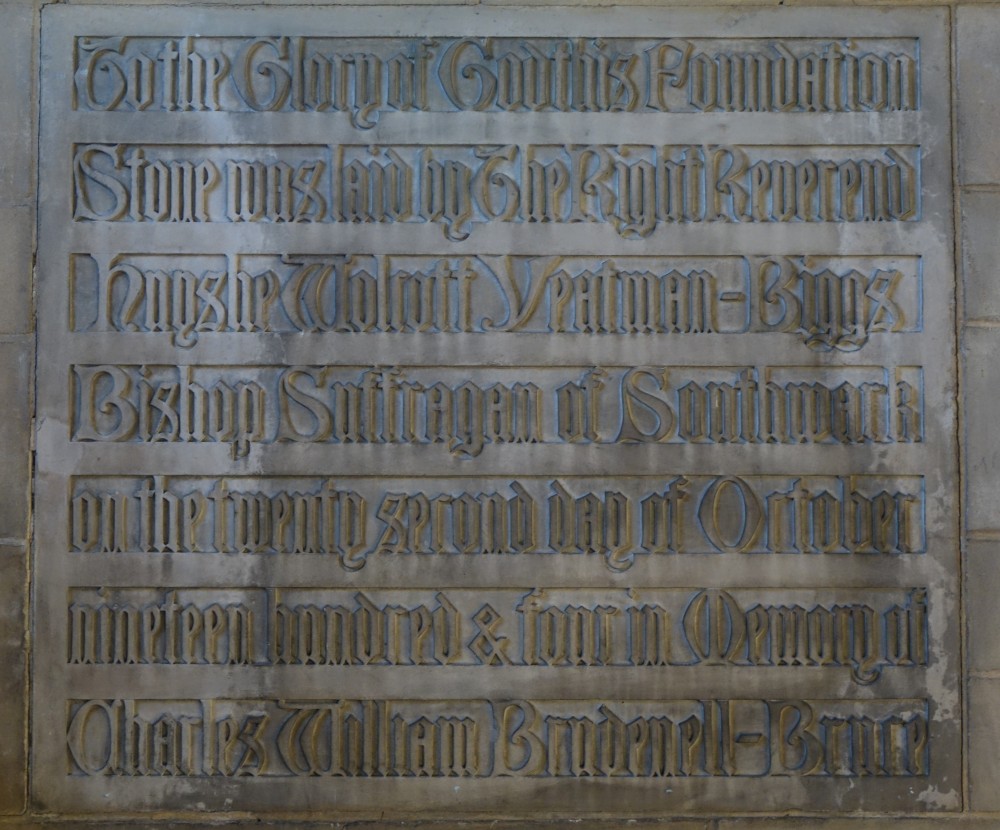 To the Glory of God this Foundation
Stone was laid by The Right Reverend
Huyshe Wolcott Yeatman-Biggs
Bishop Suffragan of Southwark
on the twenty second day of October
nineteen hundred & four in Memory of
Charles William Brudenell-Bruce